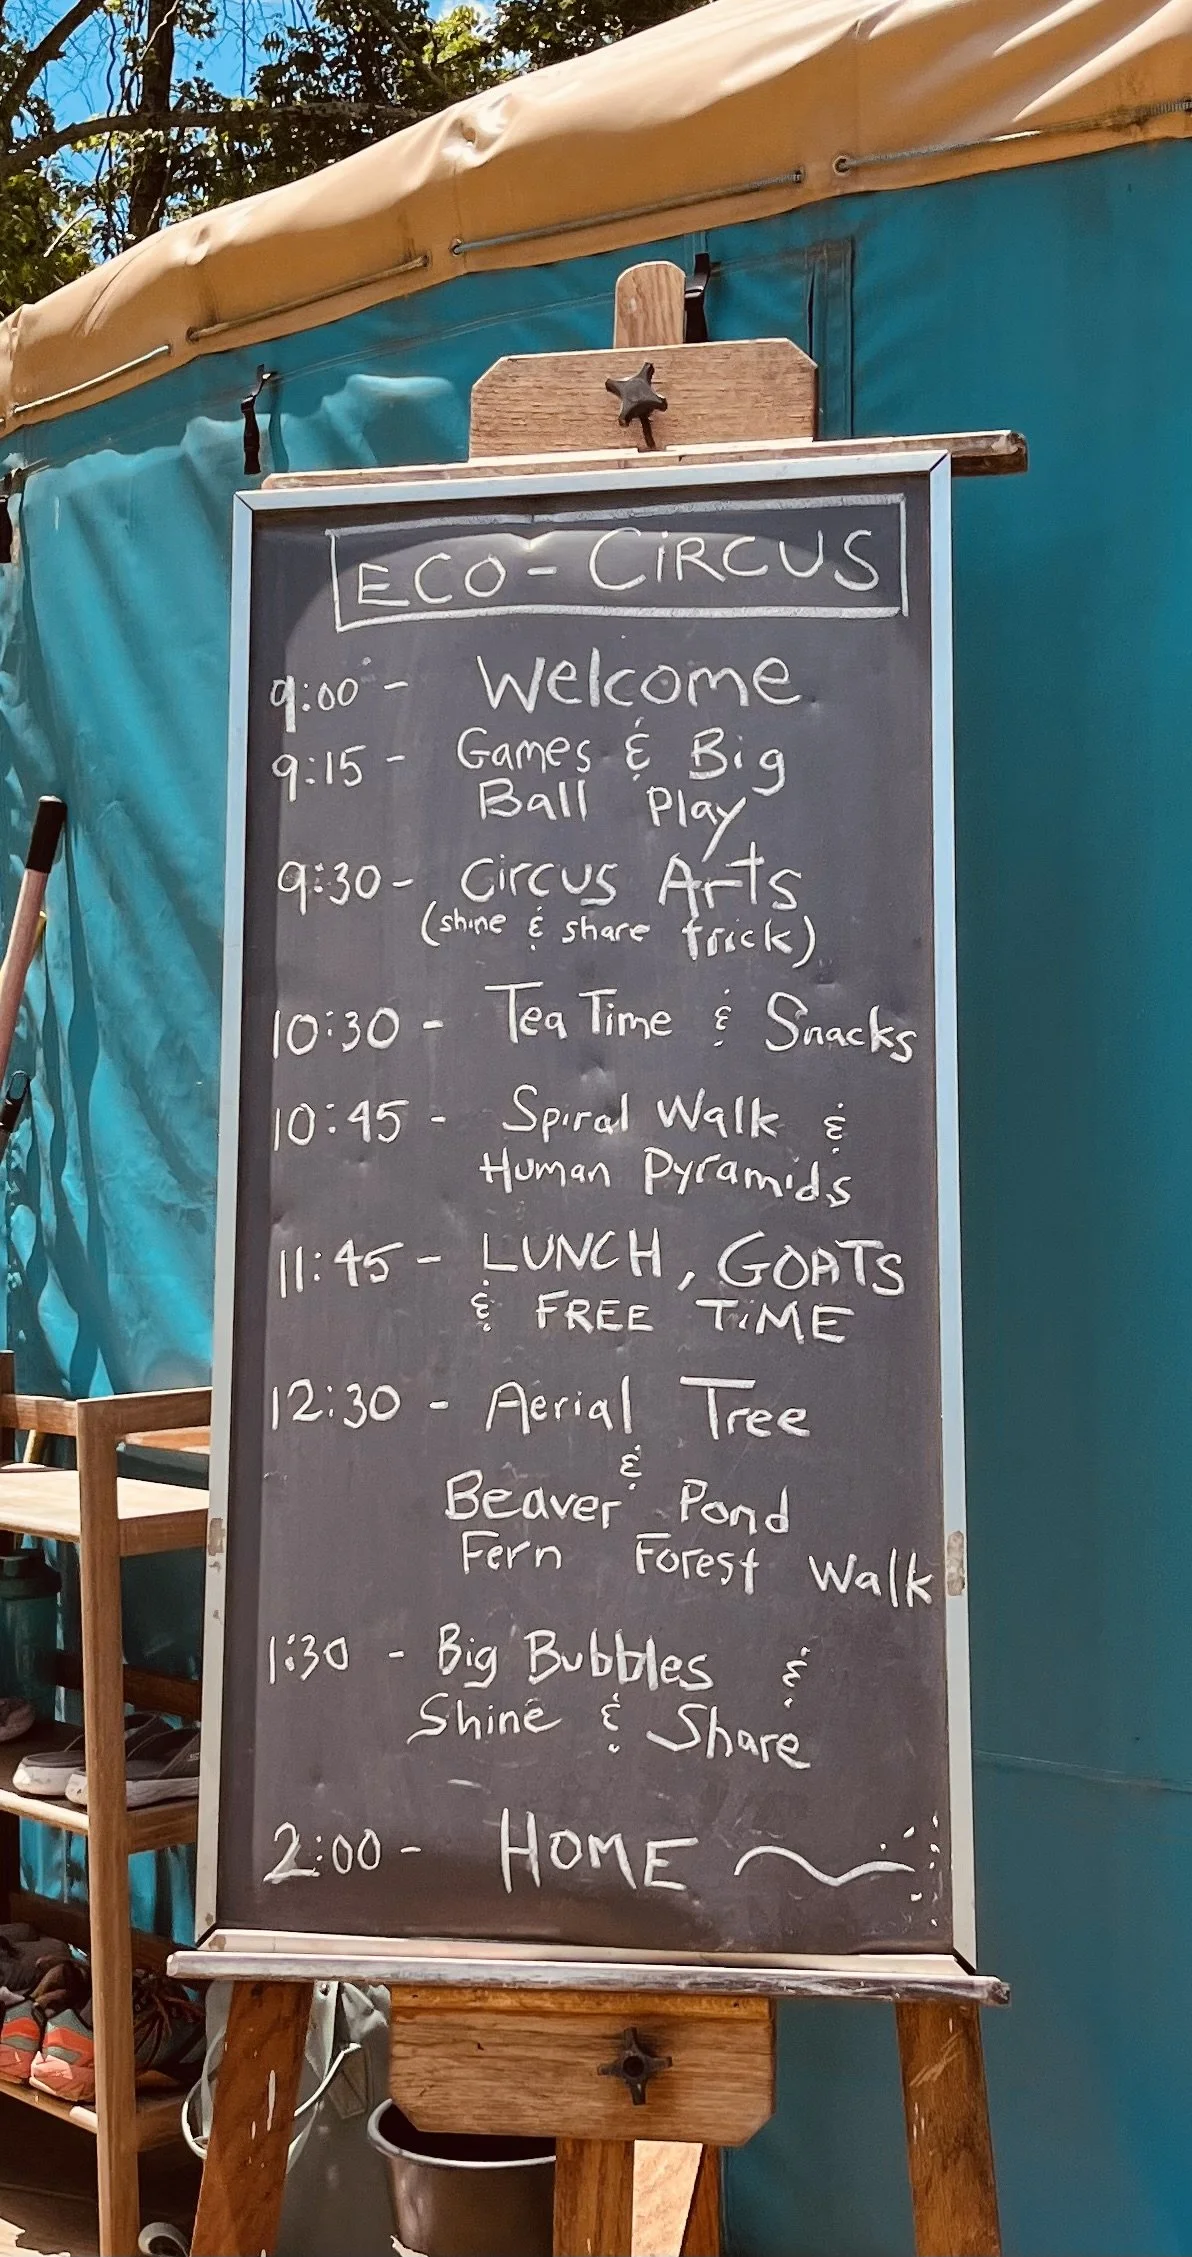 ECO-CiRCUS
9:00 - Welcome
9:15 - Games & Big
Ball Play
9:30 - Circus Arts
(shine & share trick)
10:30 - Tea Time & Snacks
10:45 - Spiral Walk &
Human Pyramids
11:45 - LUNCH, GOATS
& FREE TiME
12:30 - Aerial Tree
&
Beaver Pond
Fern Forest Walk
1:30 - Big Bubbles &
Shine & Share
2:00 - HOME